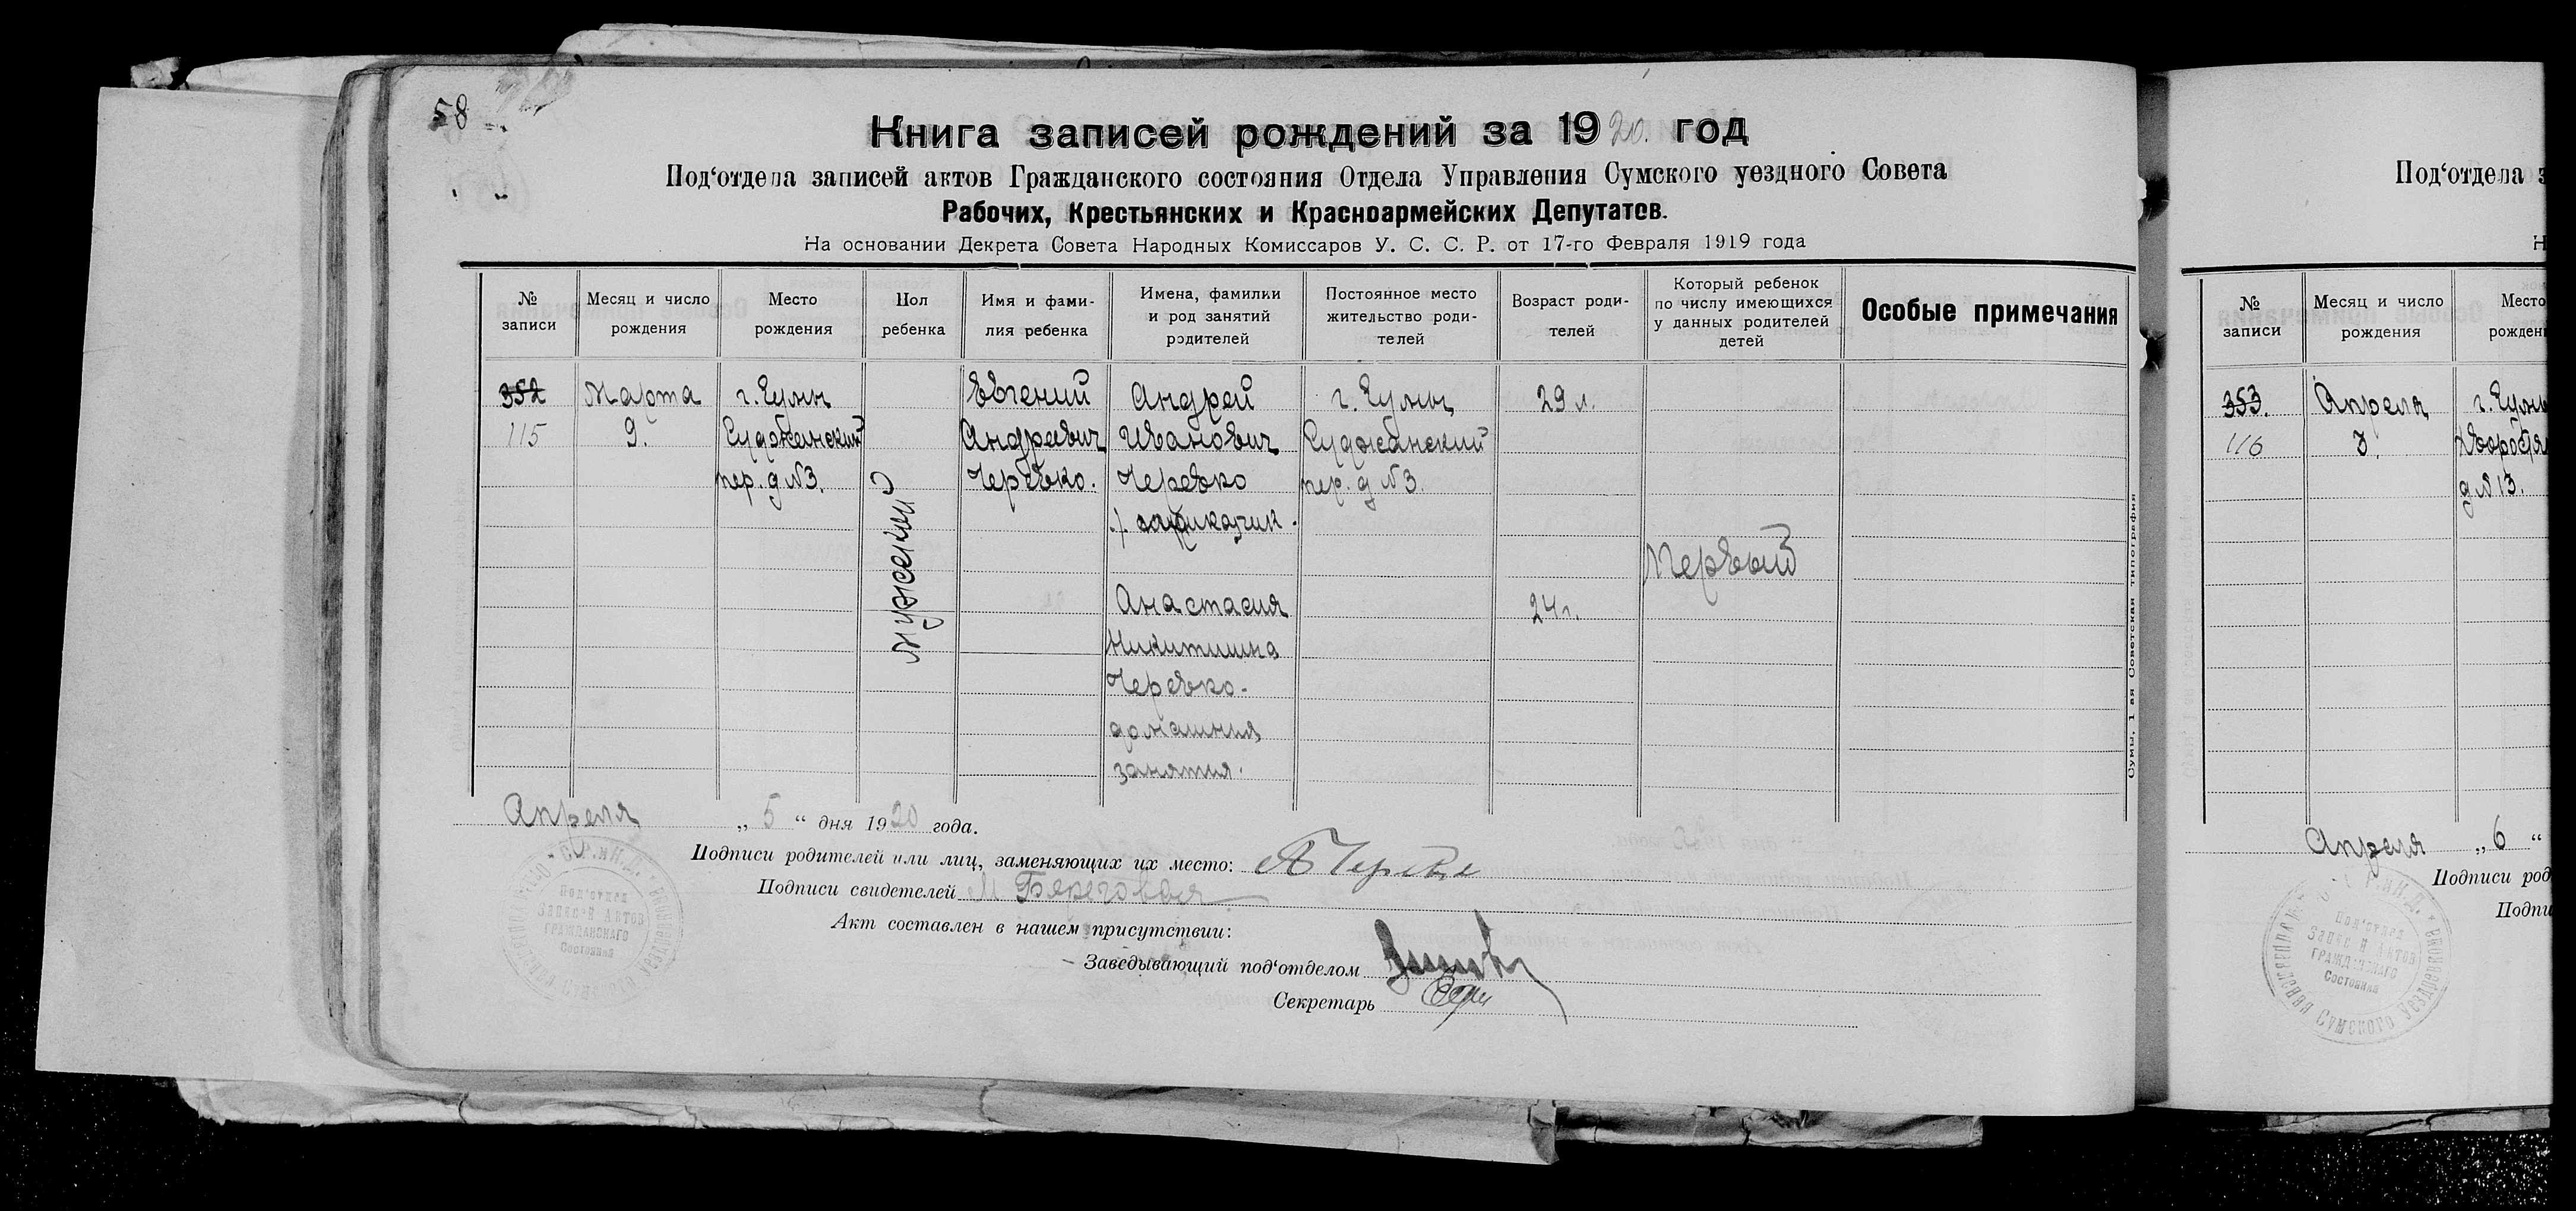 58
Книга записей рождений за 1920. год
Под‘отдела записей актов Гражданского состояния Отдела Управления Сумского уездного Совета
Рабочих, Крестьянских и Красноармейских Депутатов.
На основании Декрета Совета Народных Комиссаров У. С. С. Р. от 17-го Февраля 1919 года
№ записи
Месяц и число рождения
Место рождения
Пол ребенка
Имя и фами-
лия ребенка
Имена, фамилии
и род занятий
родителей
Постоянное место
жительство роди-
телей
Возраст роди-
телей
Который ребенок
по числу имеющихся
у данных родителей
детей
Особые примечания
352
115
Марта
9.
г. Сумы
Суджанский
пер. д №3.
мужской
Евгений
Андреевич
Черевко.
Андрей
Иванович
Черевко
приказчик.
Анастасия
Никитишна
Черевко-
домашния
занятия.
г. Сумы
Суджанский
пер. д №3.
29 л.
24 г.
Первый
Сумы, 1 ая Советская типография
Апреля „ 5 “ дня 1920 года.
Подписи родителей или лиц, заменяющих их место: А Черевко
Подписи свидетелей М Береговая
Акт составлен в нашем присутствии:
Заведывающий под‘отделом
Секретарь
Под‘отдел
Записей Актов
Гражданскаго
Состояния
Под‘отдела
№ записи
Месяц и число рождения
Место
353.
116
Апреля
3.
г. Сумы
д №13.
Апреля „ 6 “
Подписи
Под‘отдел
Записей Актов
Гражданскаго
Состояния
Сумского Уездного